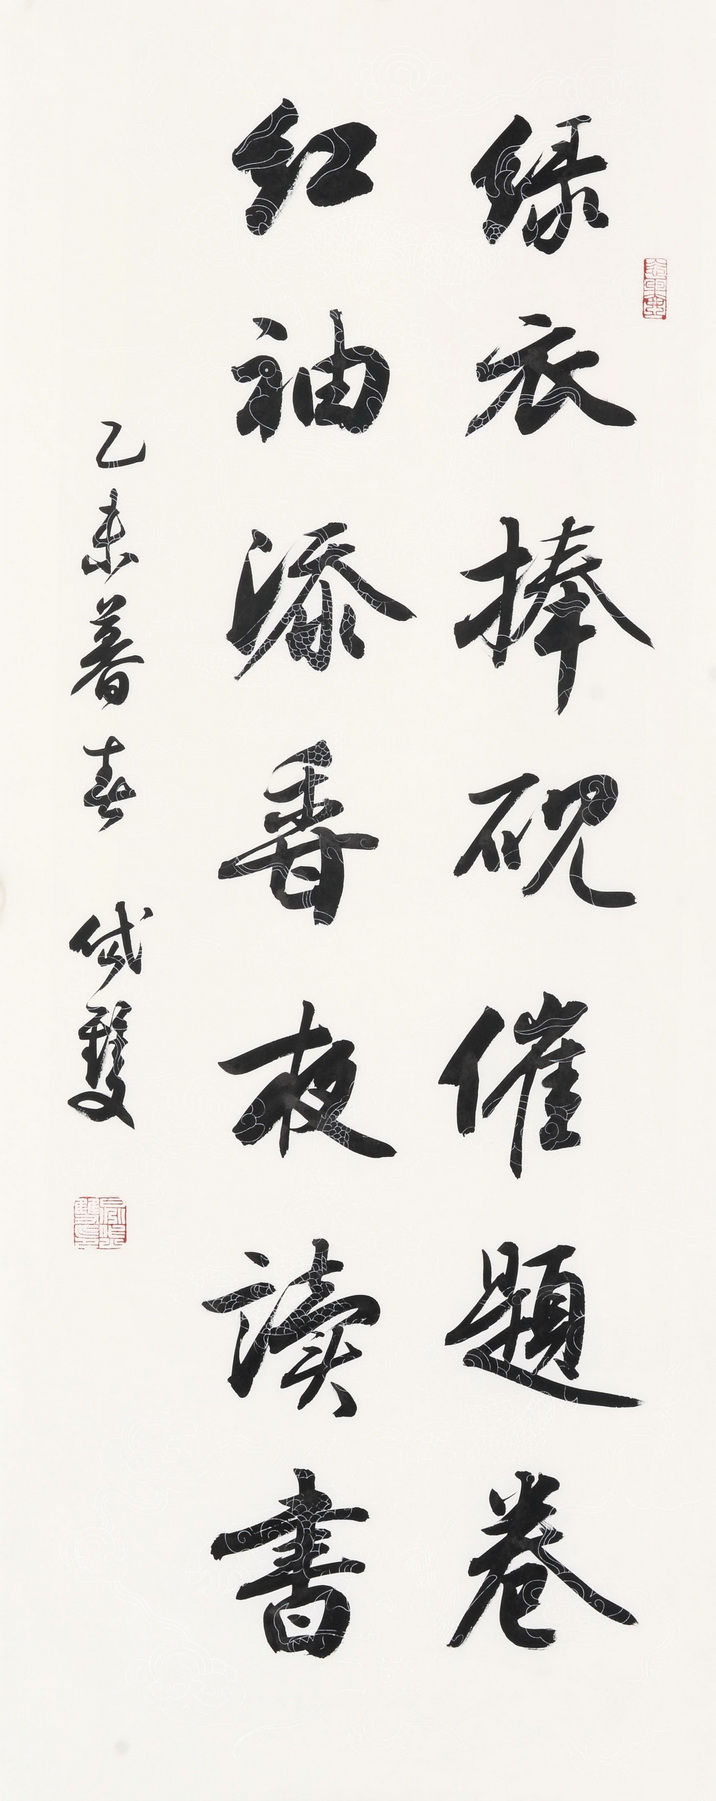 绿衣捧砚催题卷
红袖添香夜读書
乙未暮春